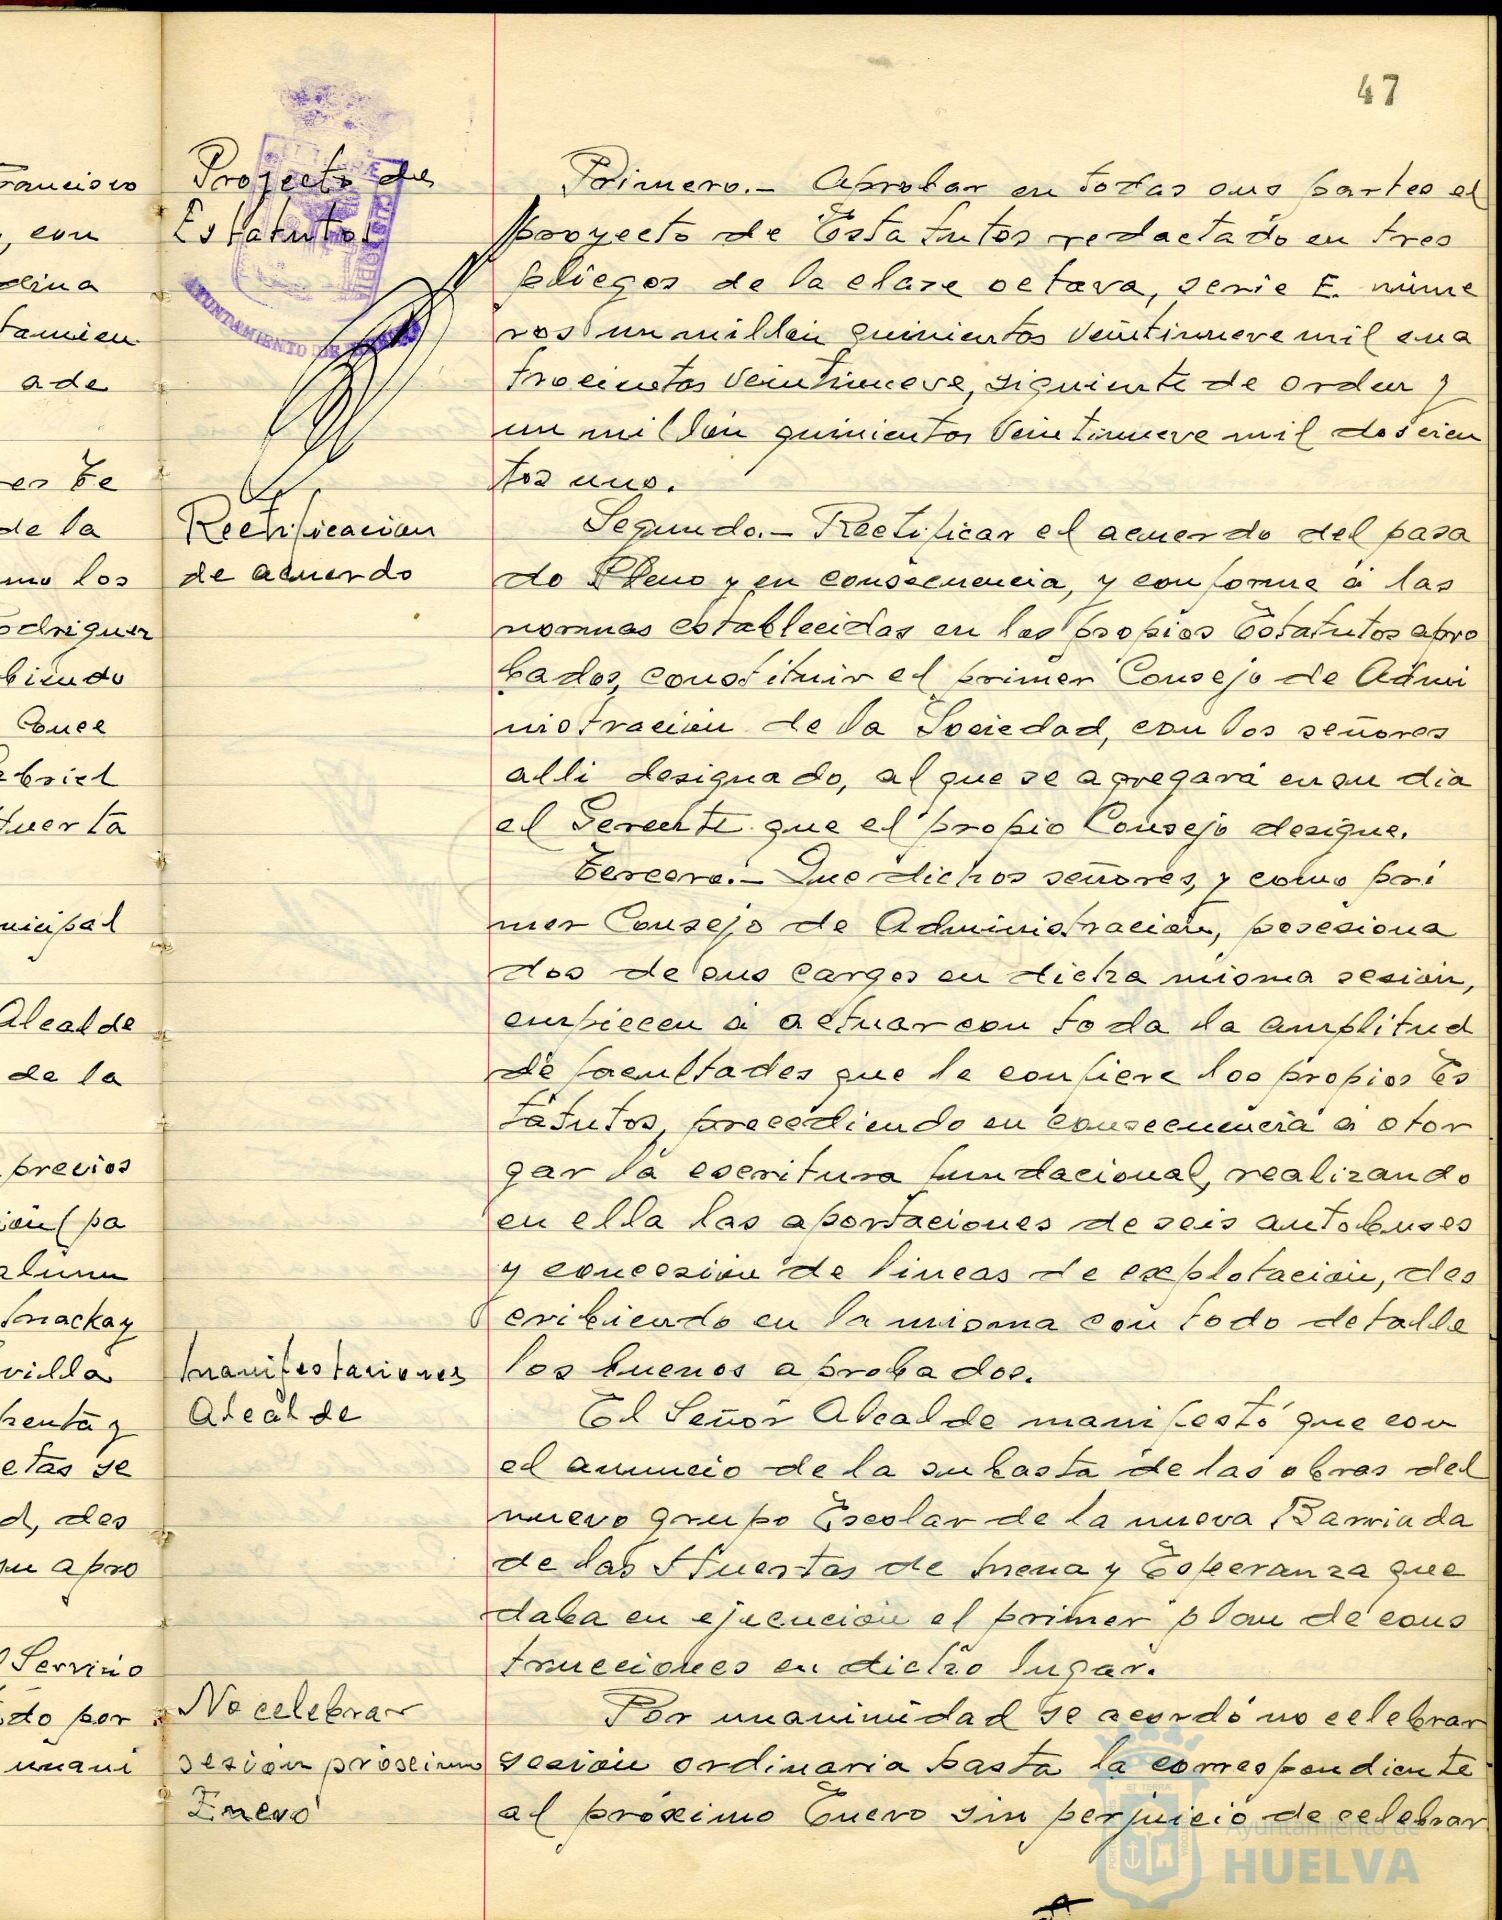 47
Proyecto de
Estatutos
Rectificación
de acuerdo
Manifestaciones
Alcalde
No celebrar
sesión próximo
Enero
Primero.- Aprobar en todas sus partes el
proyecto de Estatutos redactado en tres
pliegos de la clase octava, serie E. núme
ros un millón quinientos veintinueve mil cua
trocientos veintinueve, siguiente de orden y
un millón quinientos veintinueve mil doscien
tos uno.
Segundo.- Rectificar el acuerdo del pasa
do Pleno y en consecuencia, y conforme a las
normas establecidas en los propios Estatutos apro
bados, constituir el primer Consejo de Admi
nistración de la Sociedad, con los señores
alli designado, al que se agregará en su dia
el Gerente que el propio Consejo designe.
Tercero.- Que dichos señores, y como pri
mer Consejo de Administración, posesiona
dos de sus cargos en dicha misma sesión,
empiecen a actuar con toda la amplitud
de facultades que le confiere los propios Es
tatutos, procediendo en consecuencia a otor
gar la escritura fundacional, realizando
en ella las aportaciones de seis autobuses
y concesión de lineas de explotación, des
cribiendo en la misma con todo detalle
los buenos aprobados.
El Señor Alcalde manifestó que con
el anuncio de la subasta de las obras del
nuevo grupo Escolar de la nueva Barriada
de las Huertas de Mena y Esperanza que
daba en ejecución el primer plan de cons
trucciones en dicho lugar.
Por unanimidad se acordó no celebrar
sesión ordinaria hasta la correspondiente
al próximo Enero sin perjuicio de celebrar
rancisco
, con
tamien
ade
es Te
de la
mo los
odriguez
biendo
Conce
abriel
Huerta
nicipal
Alcalde
de la
previos
ión (pa
Mackay
villa
henta y
etas se
d, des
su apro
Servicio
do por
unani
AYUNTAMIENTO DE HUELVA
Ayuntamiento de
HUELVA